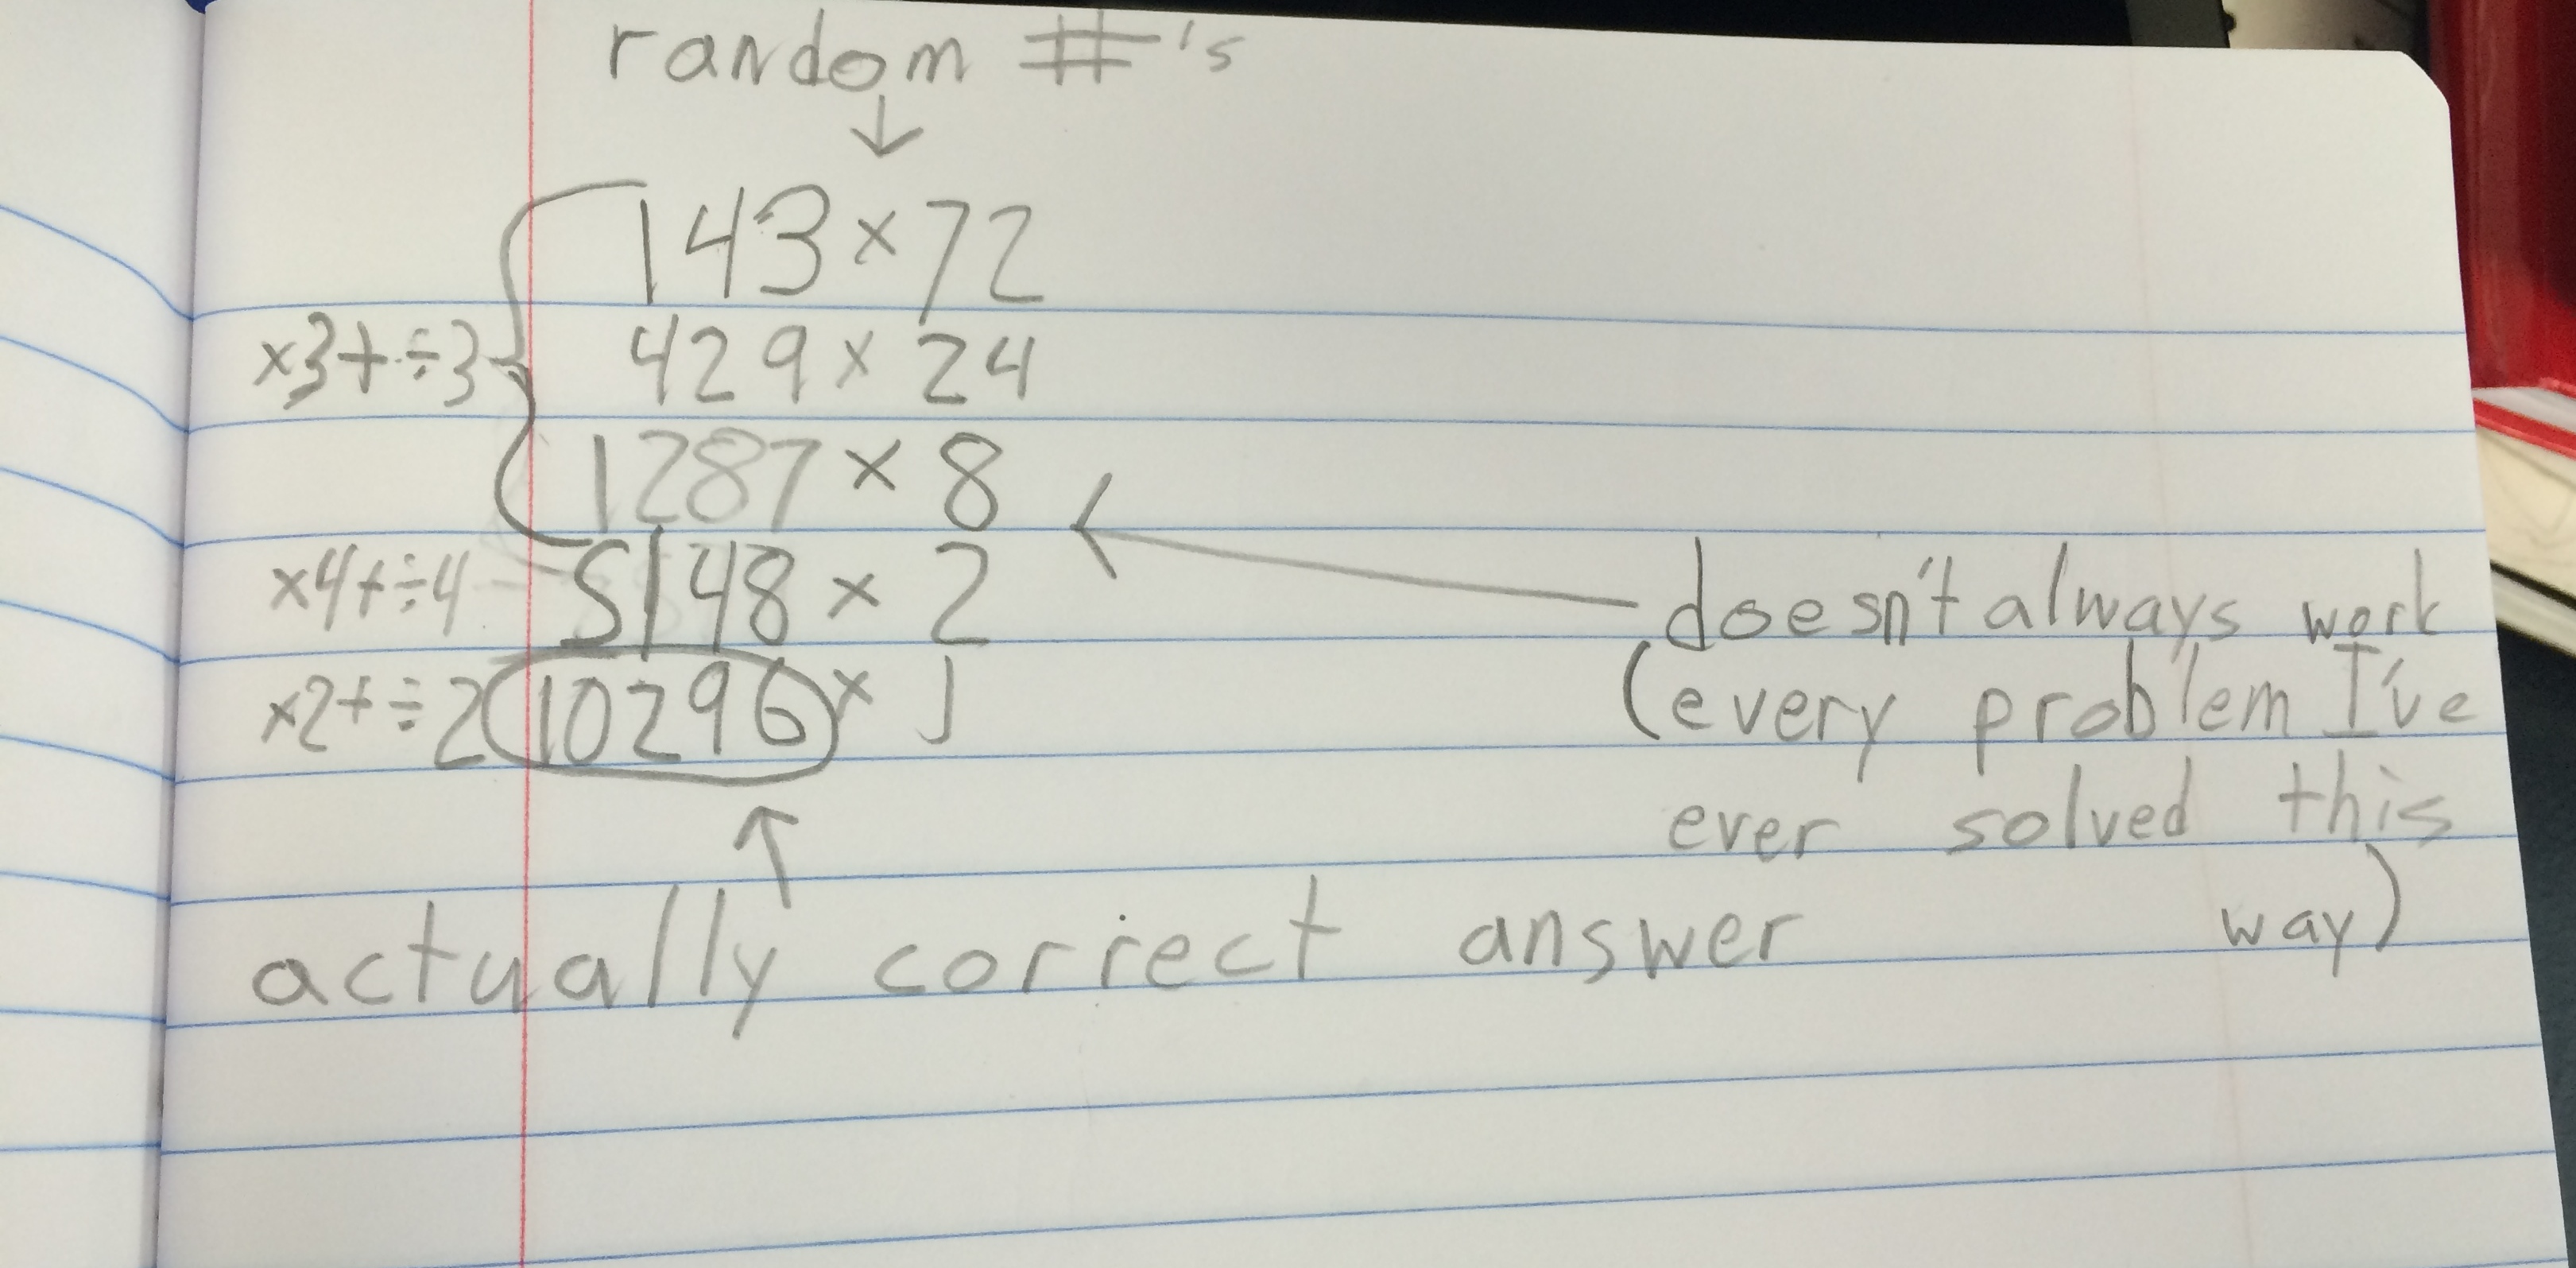 random #'s
↓
143 × 72
×3+÷3 429 × 24
1287 × 8
×4+÷4 5148 × 2
×2+÷2 10296 × 1
doesn't always work
(every problem I've
ever solved this
way)
↑
actually correct answer